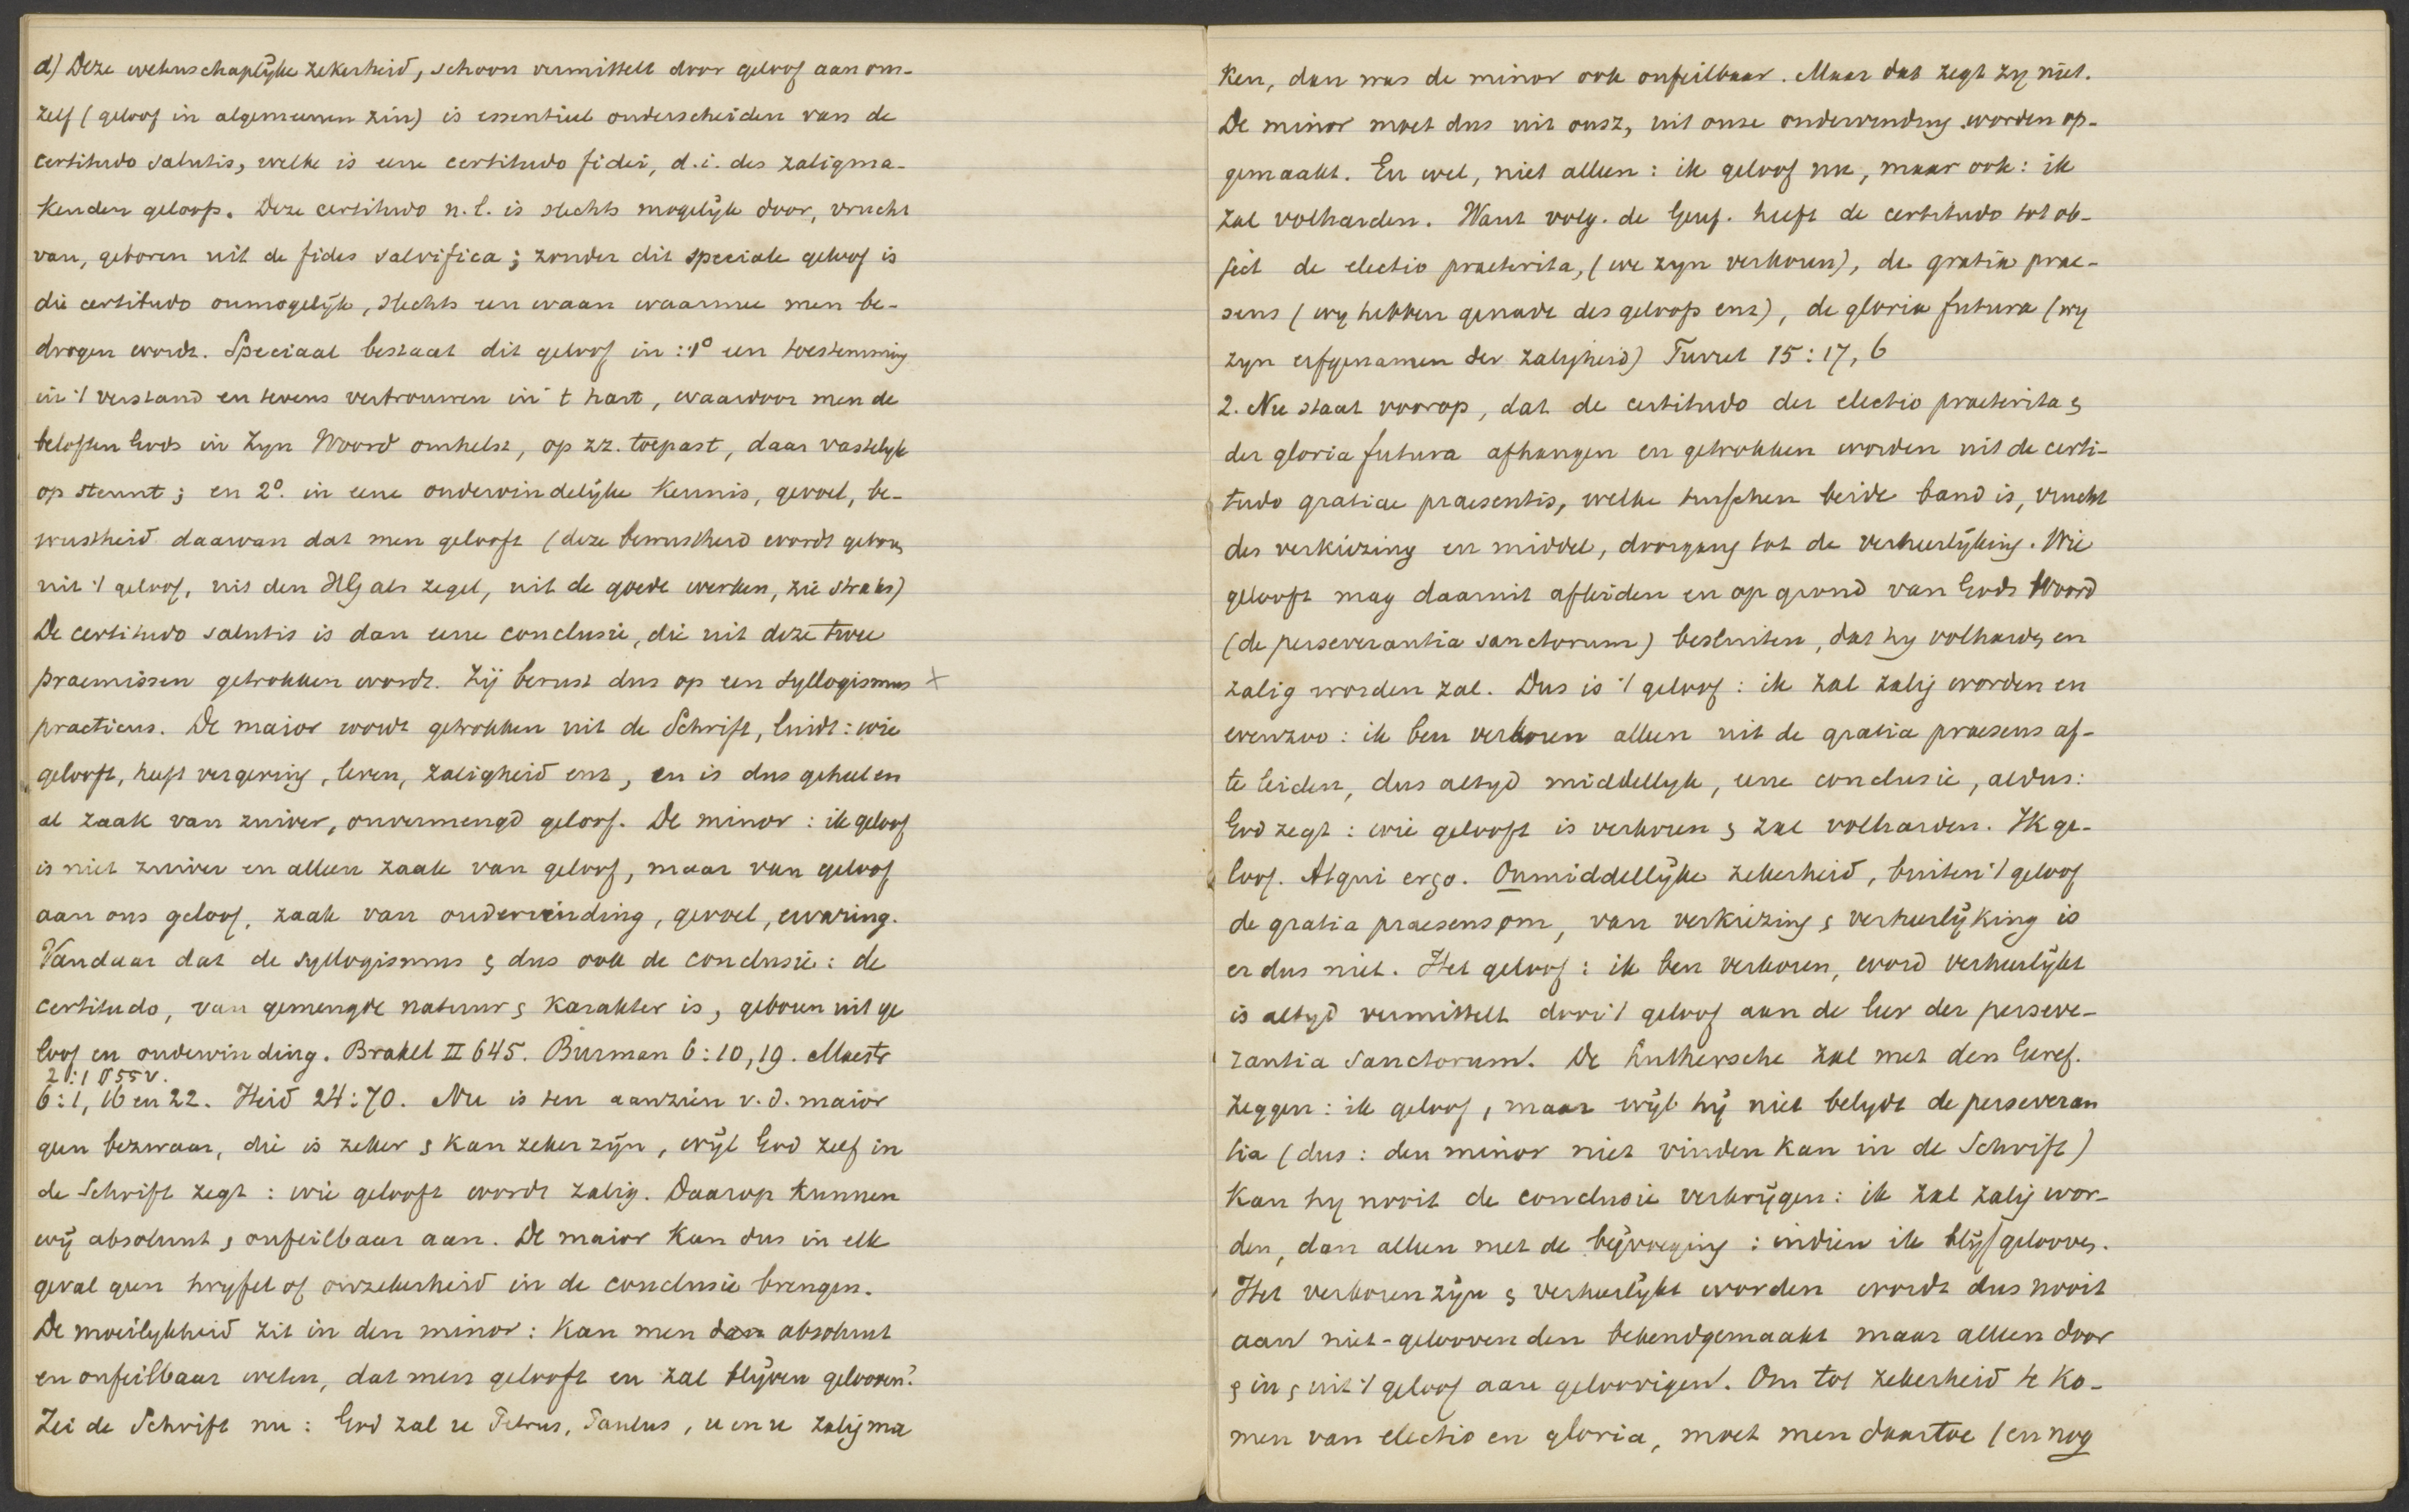 d) Deze wetenschaplijke zekerheid, schoon vermittelt door geloof aan ons-
zelf (geloof in algemeenen zin) is essentieel onderscheiden van de
certitudo salutis, welke is eene certitudo fidei, d.i. des zaligma-
kenden geloofs. Deze certitudo n.l. is slechts mogelijk door, vrucht
van, geboren uit de fides salvifica; zonder dit speciale geloof is
die certitudo onmogelijk, slechts een waan waarmee men be-
drogen wordt. Speciaal bestaat dit geloof in: 1° een toestemming
in 't verstand en tevens vertrouwen in 't hart, waardoor men de
beloften Gods in Zijn Woord omhelst, op zz. toepast, daar vastelijk
op steunt; en 2°. in eene ondervindelijke kennis, gevoel, be-
wustheid daarvan dat men gelooft (deze bewustheid wordt gebor,
uit 't geloof, uit den HG als zegel, uit de goede werken, zie straks)
De certitudo salutis is dan eene conclusie, die uit deze twee
praemissen getrokken wordt. Zij berust dus op een syllogismus ×
practicus. De maior wordt getrokken uit de Schrift, luidt: wie
gelooft, heeft vergeving, leven, zaligheid enz, en is dus geheel en
al zaak van zuiver, onvermengd geloof. De minor: ik geloof
is niet zuiver en alleen zaak van geloof, maar van geloof
aan ons geloof, zaak van ondervinding, gevoel, ervaring.
Vandaar dat de syllogismus & dus ook de conclusie: de
certitudo, van gemengde natuur & karakter is, geboren uit ge
loof en ondervinding. Brakel II 645. Burman 6:10,19. Maestr
2:1 § 55v.
6:1, 16 en 22. Heid 24:70. Nu is ten aanzien v.d. maior
geen bezwaar, die is zeker & kan zeker zijn, wijl God zelf in
de Schrift zegt: wie gelooft wordt zalig. Daarop kunnen
wij absoluut & onfeilbaar aan. De maior kan dus in elk
geval geen twyfel of onzekerheid in de conclusie brengen.
De moeilykheid zit in den minor: kan men dan absoluut
en onfeilbaar weten, dat men gelooft en zal blijven gelooven?
Zei de Schrift nu: God zal u Petrus, Paulus, u en u zalig ma
ken, dan was de minor ook onfeilbaar. Maar dat zegt zy niet.
De minor moet dus uit onsz, uit onze ondervinding worden op-
gemaakt. En wel, niet alleen: ik geloof nu, maar ook: ik
zal volharden. Want volg. de Geref. heeft de certitudo tot ob-
ject de electio praeterita, (we zyn verkoren), de gratia prae-
sens (wy hebben genade des geloofs enz), de gloria futura (wy
zyn erfgenamen der zaligheid) Turret 15:17, 6
2. Nu staat voorop, dat de certitudo der electio praeterita &
der gloria futura afhangen en getrokken worden uit de certi-
tudo gratiae praesentis, welke tusschen beide band is, vrucht
des verkiezing en middel, doorgang tot de verheerlijking. Wie
gelooft mag daaruit afleiden en op grond van Gods Woord
(de perseverantia sanctorum) besluiten, dat hy volhardt, en
zalig worden zal. Dus is 't geloof: ik zal zalig worden en
evenzoo: ik ben verkoren alleen uit de gratia praesens af-
te leiden, dus altyd middellyk, eene conclusie, aldus:
God zegt: wie gelooft is verkoren & zal volharden. Ik ge-
loof. Atqui ergo. Onmiddellijke zekerheid, buiten 't geloof
de gratia praesens om, van verkiezing & verheerlijking is
er dus niet. Het geloof: ik ben verkoren, word verheerlijkt
is altyd vermittelt door 't geloof aan de leer der perseve-
rantia sanctorum. De Luthersche zal met den Geref.
zeggen: ik geloof, maar wijl hij niet belydt de perseveran
tia (dus: den minor niet vinden kan in de Schrift)
kan hy nooit de conclusie verkrijgen: ik zal zalig wor-
den, dan alleen met de bijvoeging: indien ik blijf gelooven.
Het verkoren zijn & verheerlijkt worden wordt dus nooit
aan niet-geloovenden bekendgemaakt maar alleen door
& in & uit 't geloof aan geloovigen. Om tot zekerheid te ko-
men van electio en gloria, moet men daartoe (en nog